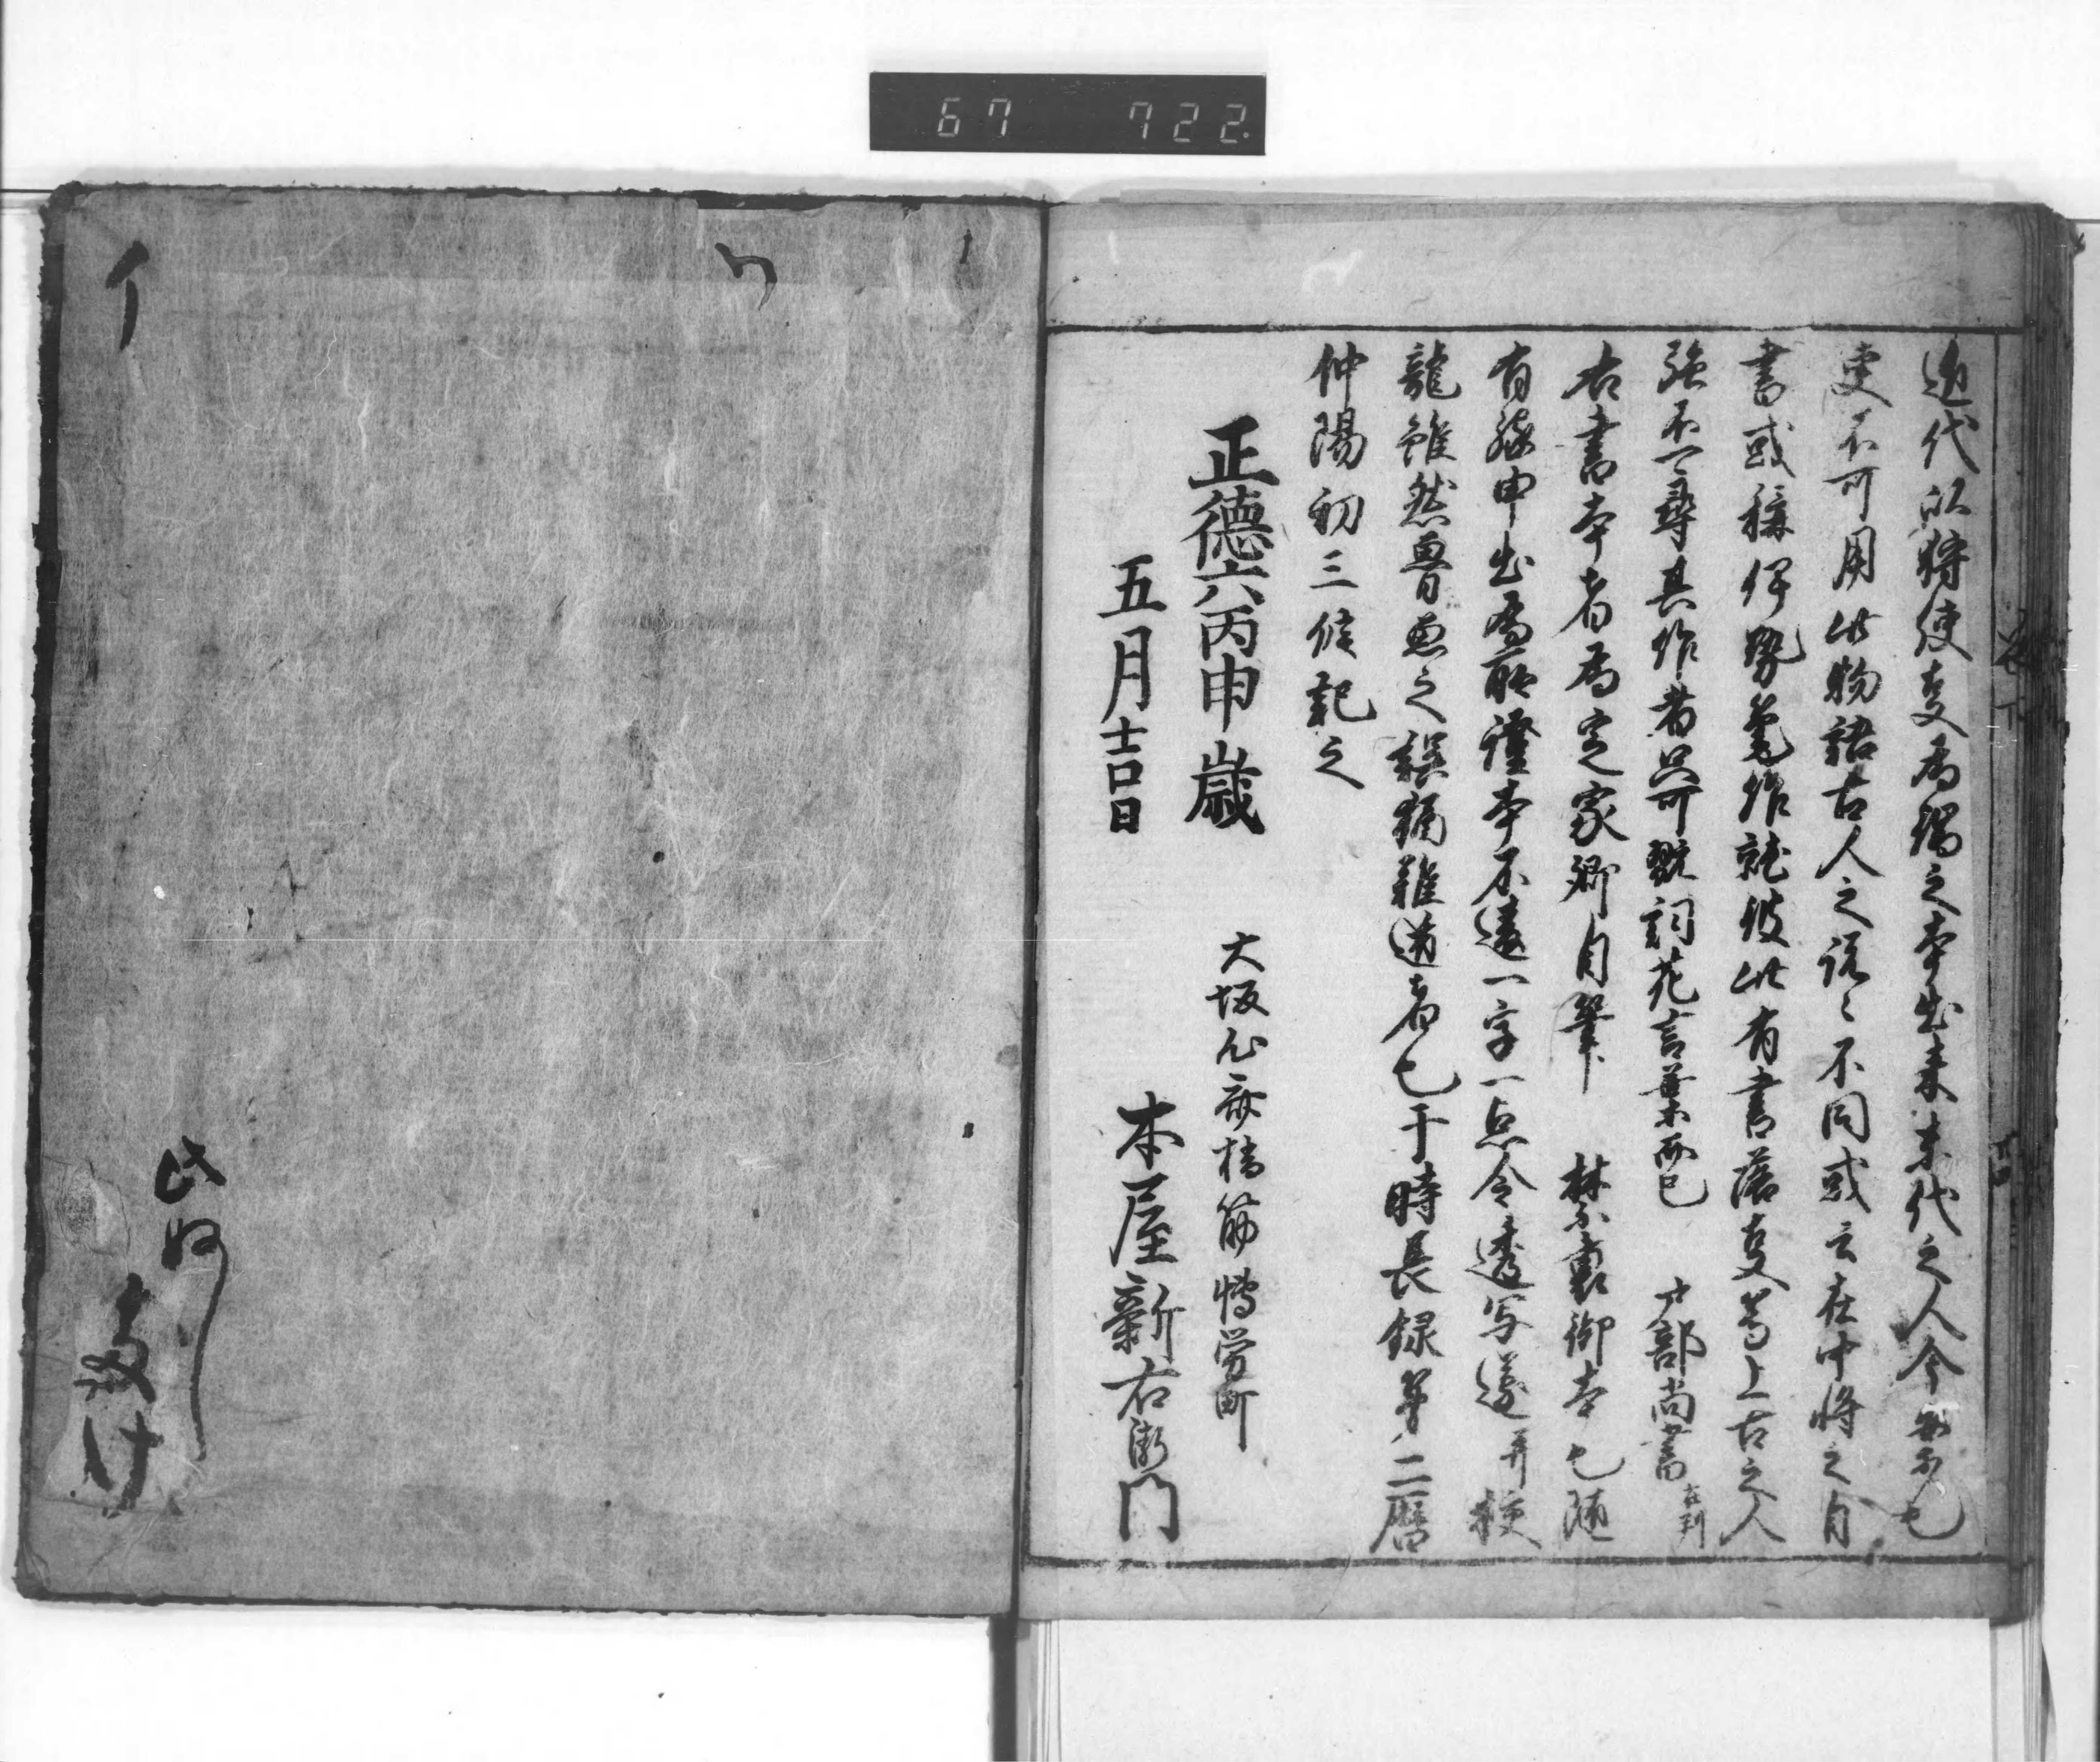 67 722
近代以狩使事為端之本出来末代之人今案也
更不可用此物語古人之説〻不同或云在中将之自
書或稱伊勢筆作就彼此有書落事等上古之人
強不可尋其作者只可翫詞花言葉而已 戸部尚書 在判
右書本者為定家卿自筆 禁裏御本也随
有縁申出為証本不違一字一点令透写遂并校
龍雖然魯魚之誤猶難遁者也于時長録第二暦
仲陽初三候記之
正徳六丙申歳
五月吉日
大坂心斎橋筋博労町
本屋新右衛門